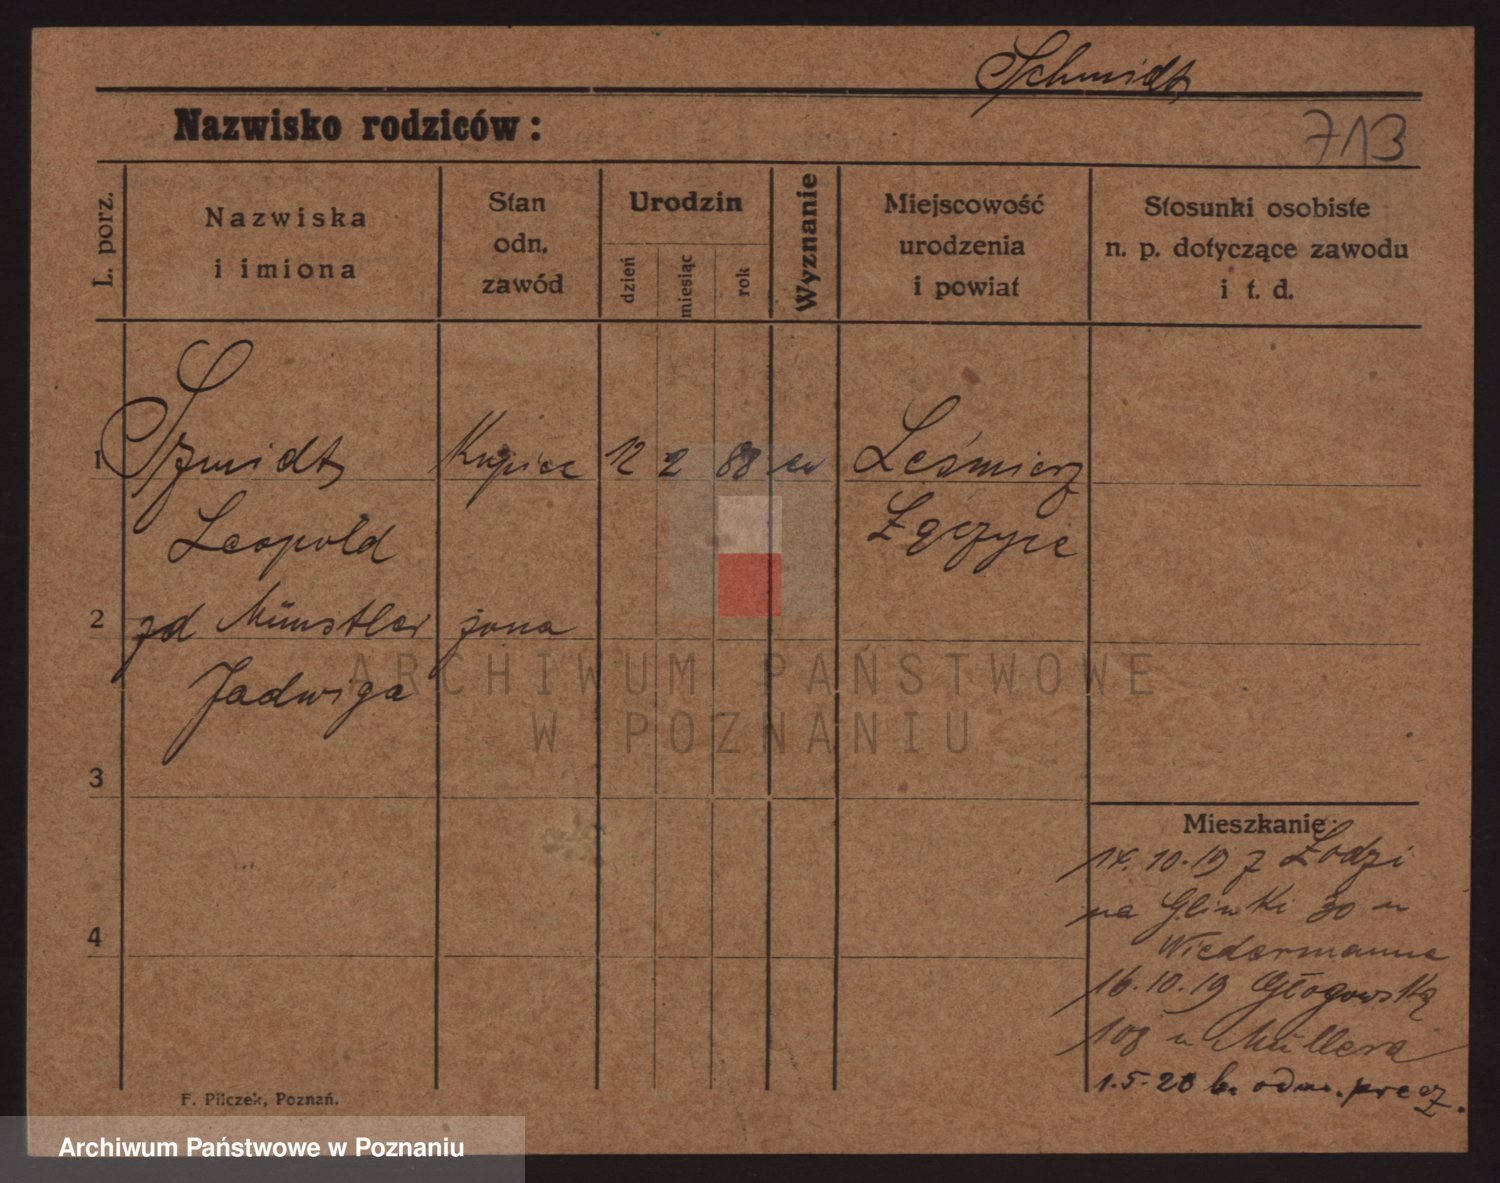 Schmidt
Nazwisko rodziców:
713
L. porz.
Nazwiska
i imiona
Stan
odn.
zawód
Urodzin
dzień
miesiąc
rok
Wyznanie
Miejscowość
urodzenia
i powiat
Stosunki osobiste
n. p. dotyczące zawodu
i t. d.
1 Szmidt Kupiec 12 2 88 ew Leśmierz
Leopold Łęczyce
2 zd żona
Jadwiga
3
4
Mieszkanie:
10.19 z Łodzi
na Glinki 30 u
Wiedermanna
16.10.19 Głogowską
108 u Müllera
1.5.20 b. odm. precz.
F. Pilczek, Poznań.
ARCHIWUM PAŃSTWOWE
W POZNANIU
Archiwum Państwowe w Poznaniu